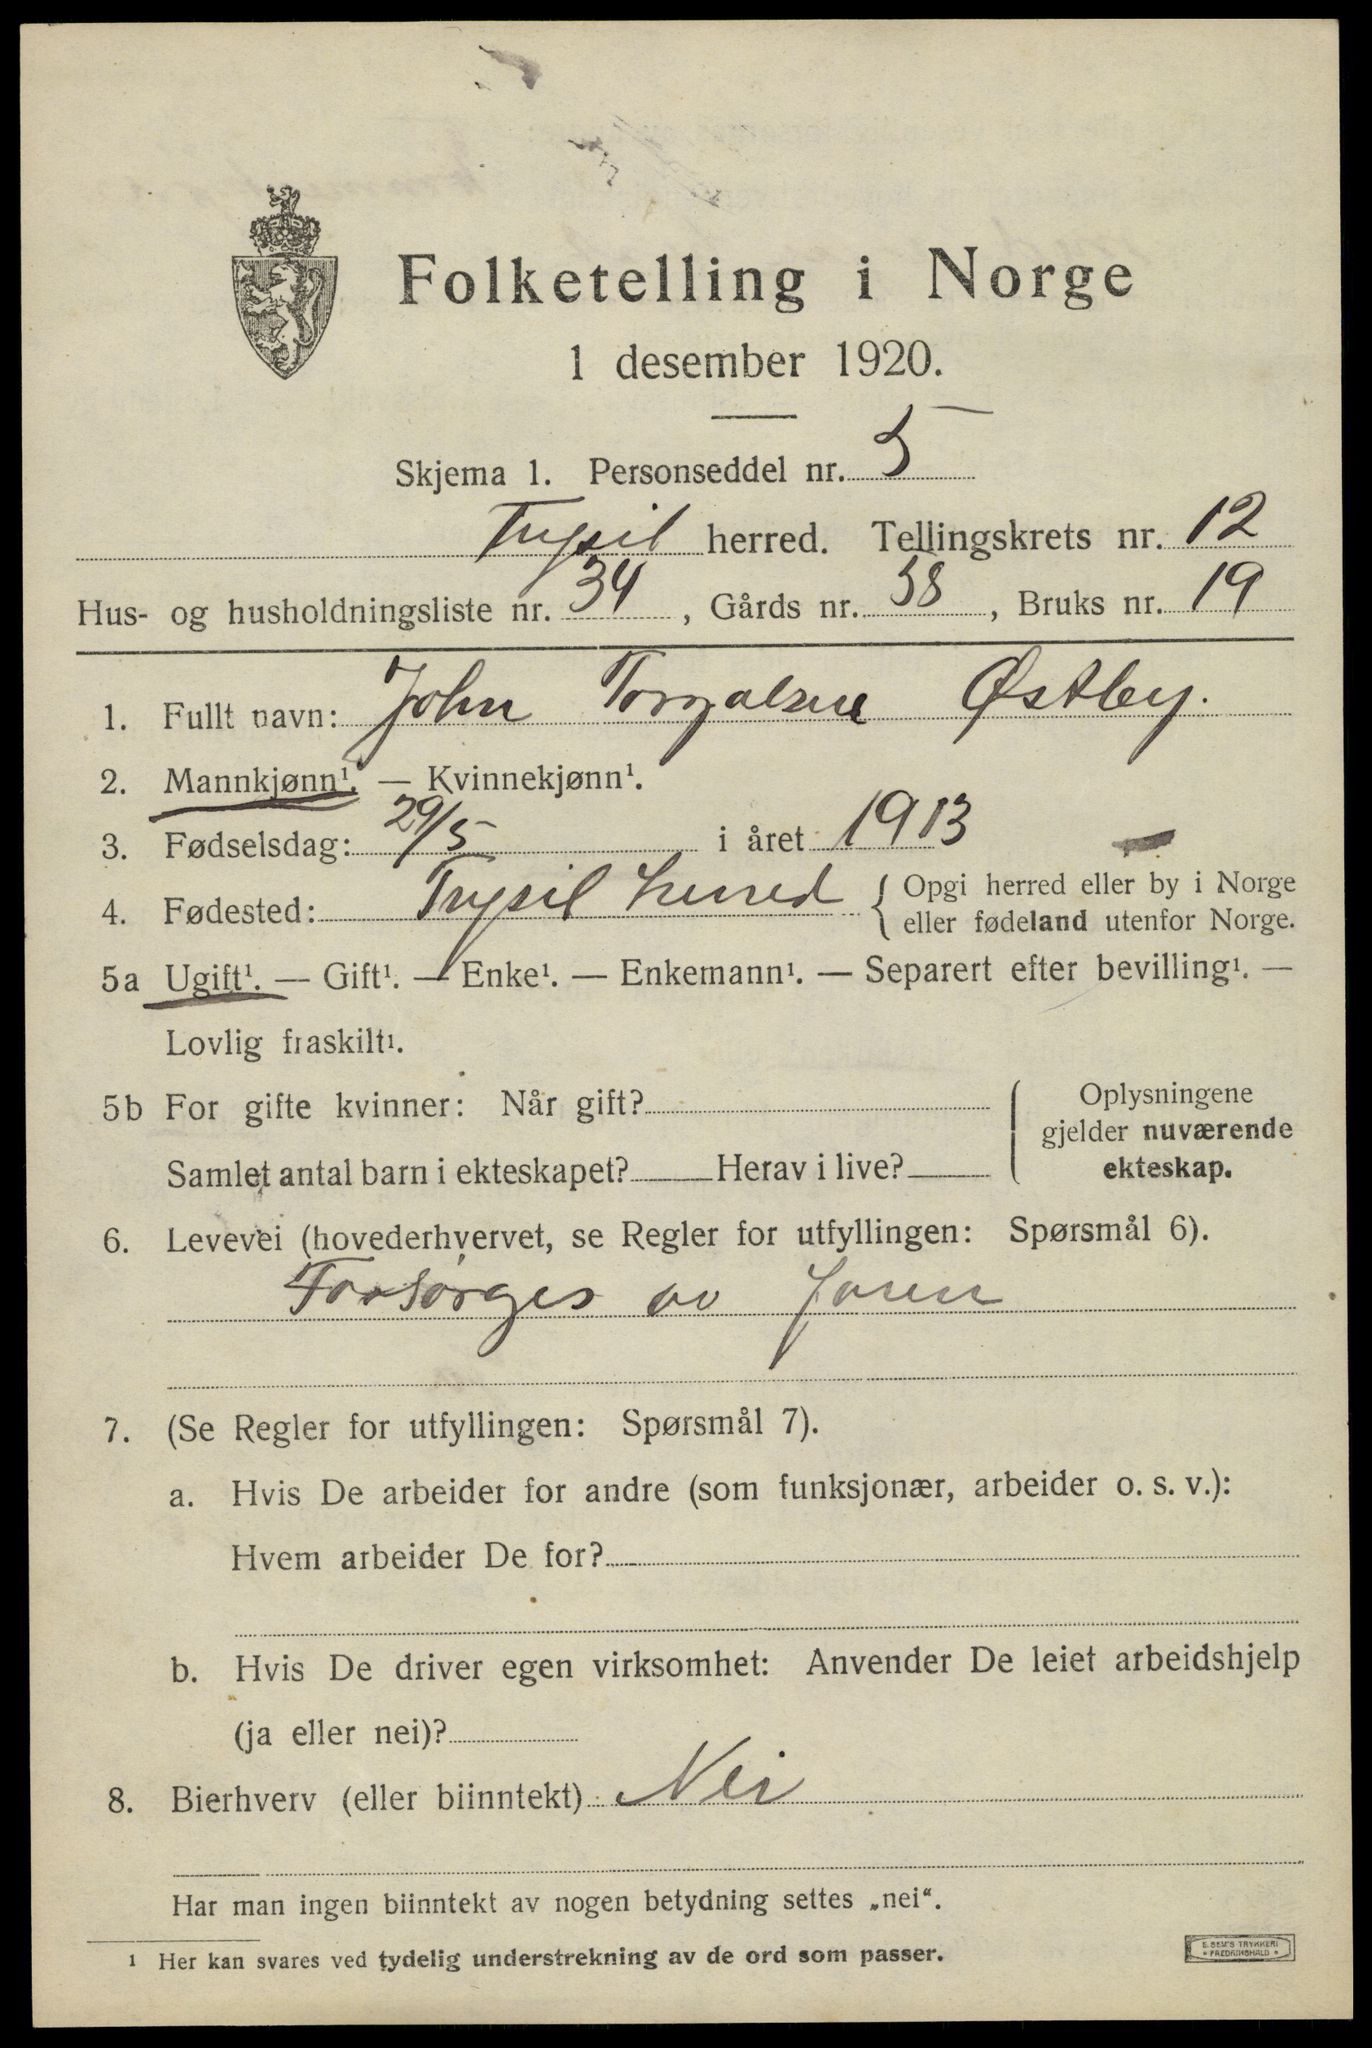 Folketelling i Norge
1 desember 1920.
Skjema 1. Personseddel nr. 5
Trysil herred. Tellingskrets nr. 12
Hus- og husholdningsliste nr. 34, Gårds nr. 58, Bruks nr. 19
1. Fullt navn: John Østby.
2. Mannkjønn¹. — Kvinnekjønn¹.
3. Fødselsdag: 29/5 i året 1913
4. Fødested: Trysil herred { Opgi herred eller by i Norge
eller fødeland utenfor Norge.
5a Ugift¹. — Gift¹. — Enke¹. — Enkemann¹. — Separert efter bevilling¹. —
Lovlig fraskilt¹.
5b For gifte kvinner: Når gift?
Samlet antal barn i ekteskapet? Herav i live?
Oplysningene
gjelder nuværende
ekteskap.
6. Levevei (hovederhvervet, se Regler for utfyllingen: Spørsmål 6).
Forsørges av faren
7. (Se Regler for utfyllingen: Spørsmål 7).
a. Hvis De arbeider for andre (som funksjonær, arbeider o. s. v.):
Hvem arbeider De for?
b. Hvis De driver egen virksomhet: Anvender De leiet arbeidshjelp
(ja eller nei)?
8. Bierhverv (eller biinntekt) Nei
Har man ingen biinntekt av nogen betydning settes „nei“.
¹ Her kan svares ved tydelig understrekning av de ord som passer.
E. SEM'S TRYKKERI
* FREDRIKSHALD *